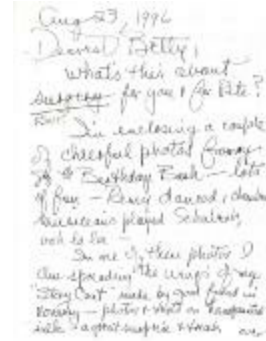 Aug 23, 1996
Dearest Betty,
What's this about
surgery for you & for Pete?
I'm enclosing a couple
of cheerful photos from
my Birthday Bash — lots
of fun — danced,
musicians played Schubert,
ooh la la —
In one of these photos I
am spreading the wings of my
"Story Coat" made by good friend in
— photos & words on
silk — a great surprise &
over